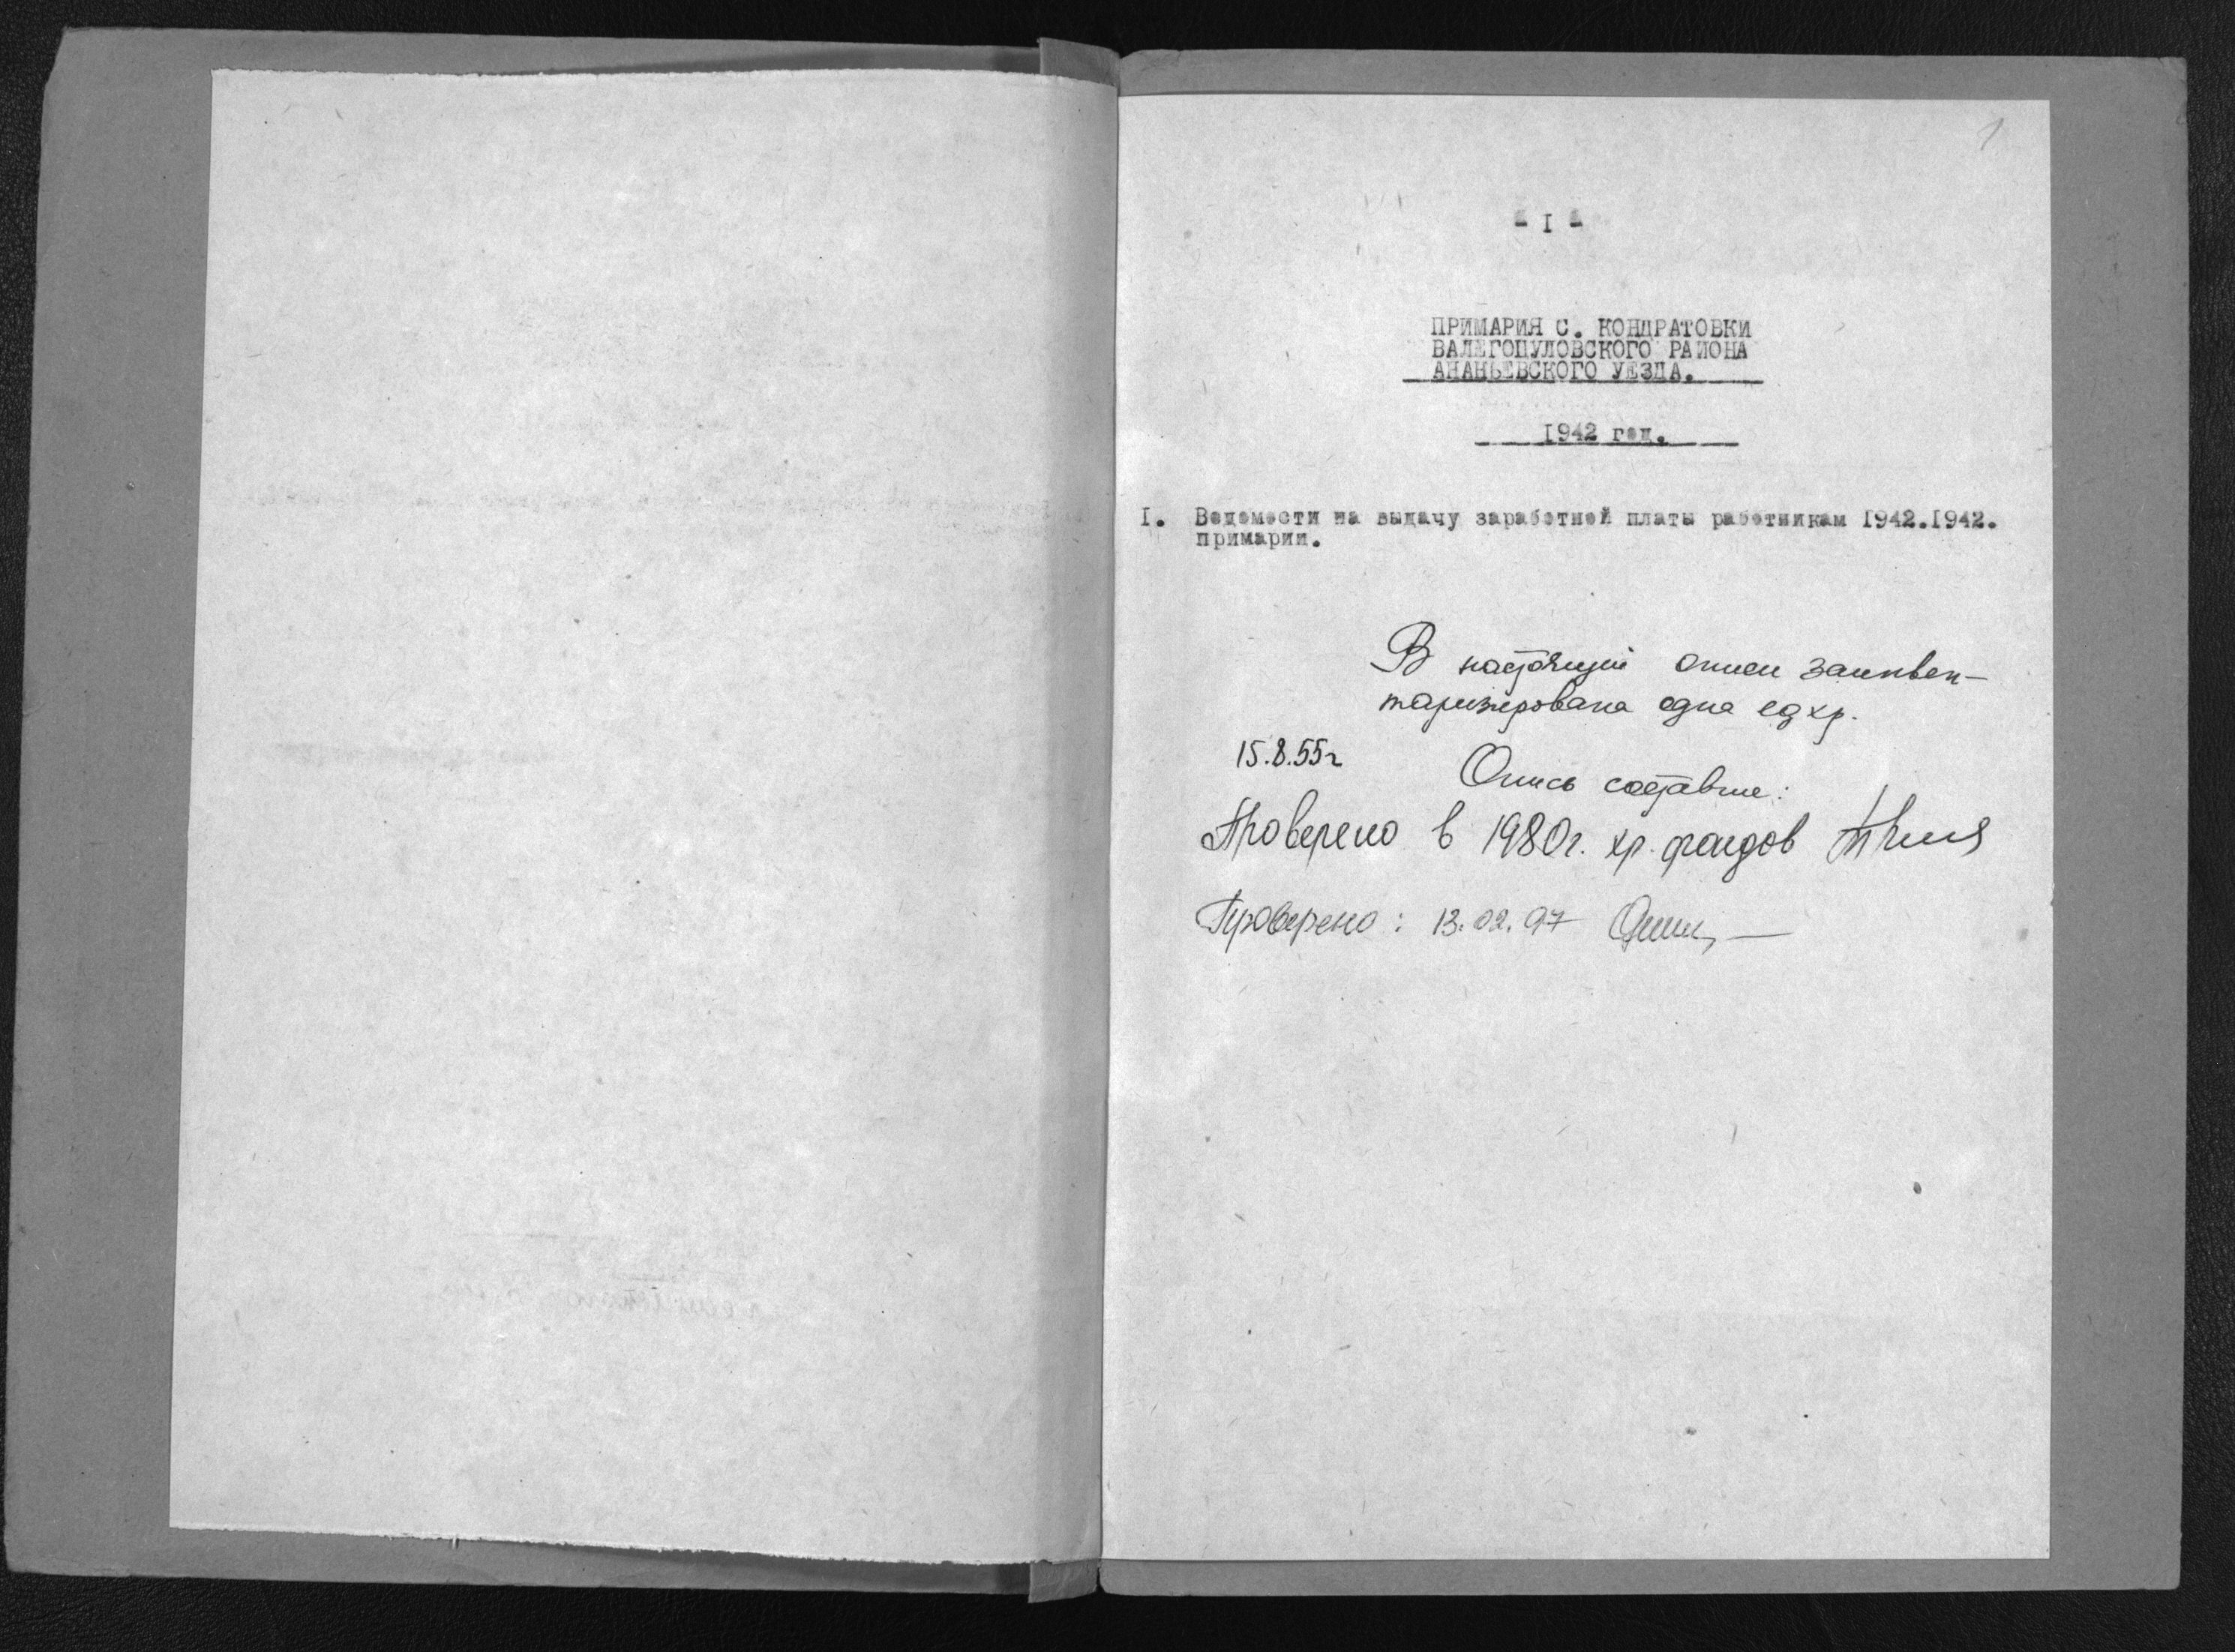 1
- I -
ПРИМАРИЯ С. КОНДРАТОВКИ
ВАЛЕГОЦУЛОВСКОГО РАЙОНА
АНАНЬЕВСКОГО УЕЗДА.
1942 год.
I. Ведомости на выдачу заработной платы работникам 1942.1942.
примарии.
В настоящей описи заинвен-
таризирована одна ед хр.
15.8.55г
Опись составил:
Проверено в 1980г. хр. фондов
Проверено: 13.02.97